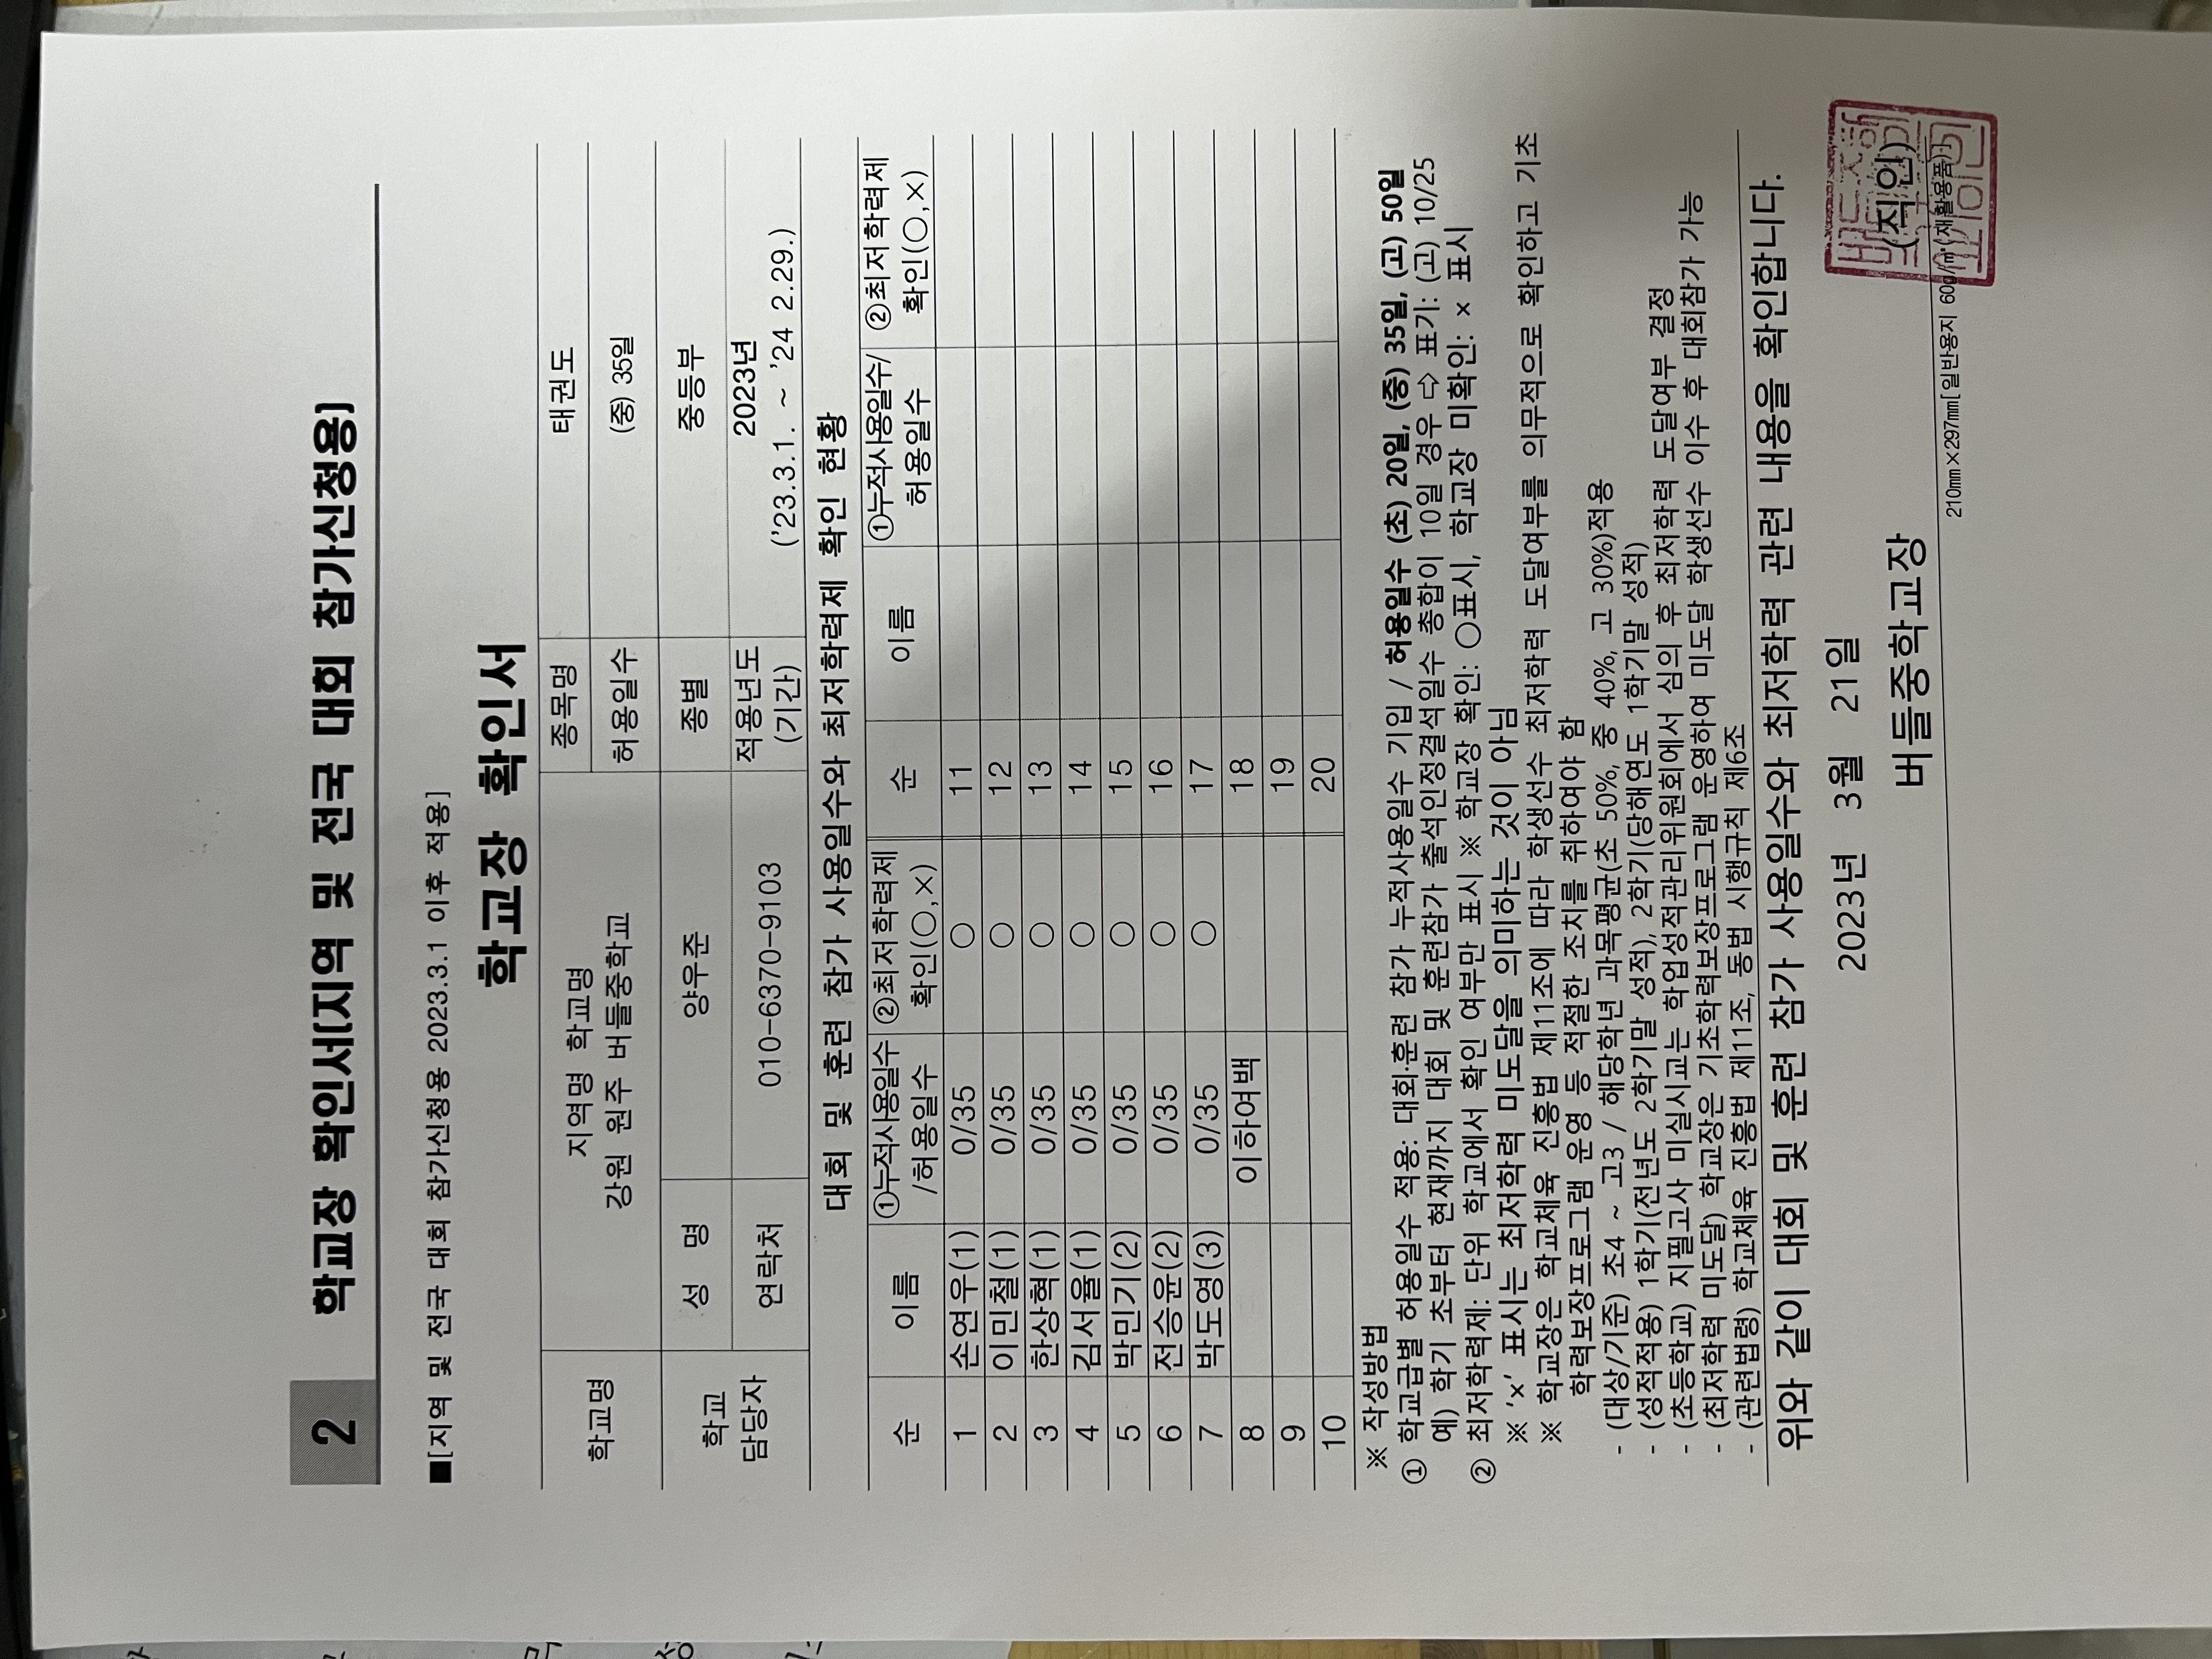 2 학교장 확인서(지역 및 전국 대회 참가신청용)
■[지역 및 전국 대회 참가신청용 2023.3.1 이후 적용]
학교장 확인서
학교명 지역명 학교명 종목명 태권도
강원 원주 버들중학교 허용일수 (중) 35일
학교 담당자 성 명 양우준 종별 중등부
연락처 010-6370-9103 적용년도 (기간) 2023년
('23.3.1. ~ '24 2.29.)
대회 및 훈련 참가 사용일수와 최저학력제 확인 현황
순 이름 ①누적사용일수/허용일수 ②최저학력제 확인(○,×) 순 이름 ①누적사용일수/허용일수 ②최저학력제 확인(○,×)
1 손연우(1) 0/35 ○ 11
2 이민철(1) 0/35 ○ 12
3 한상혁(1) 0/35 ○ 13
4 김서율(1) 0/35 ○ 14
5 박민기(2) 0/35 ○ 15
6 전승윤(2) 0/35 ○ 16
7 박도영(3) 0/35 ○ 17
8 이하여백 18
9 19
10 20
※ 작성방법
① 학교급별 허용일수 적용: 대회·훈련 참가 누적사용일수 기입 / 허용일수 (초) 20일, (중) 35일, (고) 50일
예) 학기 초부터 현재까지 대회 및 훈련참가 출석인정결석일수 총합이 10일 경우 ⇨ 표기: (고) 10/25
② 최저학력제: 단위 학교에서 확인 여부만 표시 ※ 학교장 확인: ○표시, 학교장 미확인: × 표시
※ '×' 표시는 최저학력 미도달을 의미하는 것이 아님
※ 학교장은 학교체육 진흥법 제11조에 따라 학생선수 최저학력 도달여부를 의무적으로 확인하고 기초
학력보장프로그램 운영 등 적절한 조치를 취하여야 함
- (대상/기준) 초4 ~ 고3 / 해당학년 과목평균(초 50%, 중 40%, 고 30%)적용
- (성적적용) 1학기(전년도 2학기말 성적), 2학기(당해연도 1학기말 성적)
- (초등학교) 지필고사 미실시교는 학업성적관리위원회에서 심의 후 최저학력 도달여부 결정
- (최저학력 미도달) 학교장은 기초학력보장프로그램 운영하여 미도달 학생선수 이수 후 대회참가 가능
- (관련법령) 학교체육 진흥법 제11조, 동법 시행규칙 제6조
위와 같이 대회 및 훈련 참가 사용일수와 최저학력 관련 내용을 확인합니다.
2023년 3월 21일
버들중학교장 (직인)
210㎜×297㎜[일반용지 60g/㎡(재활용품)]